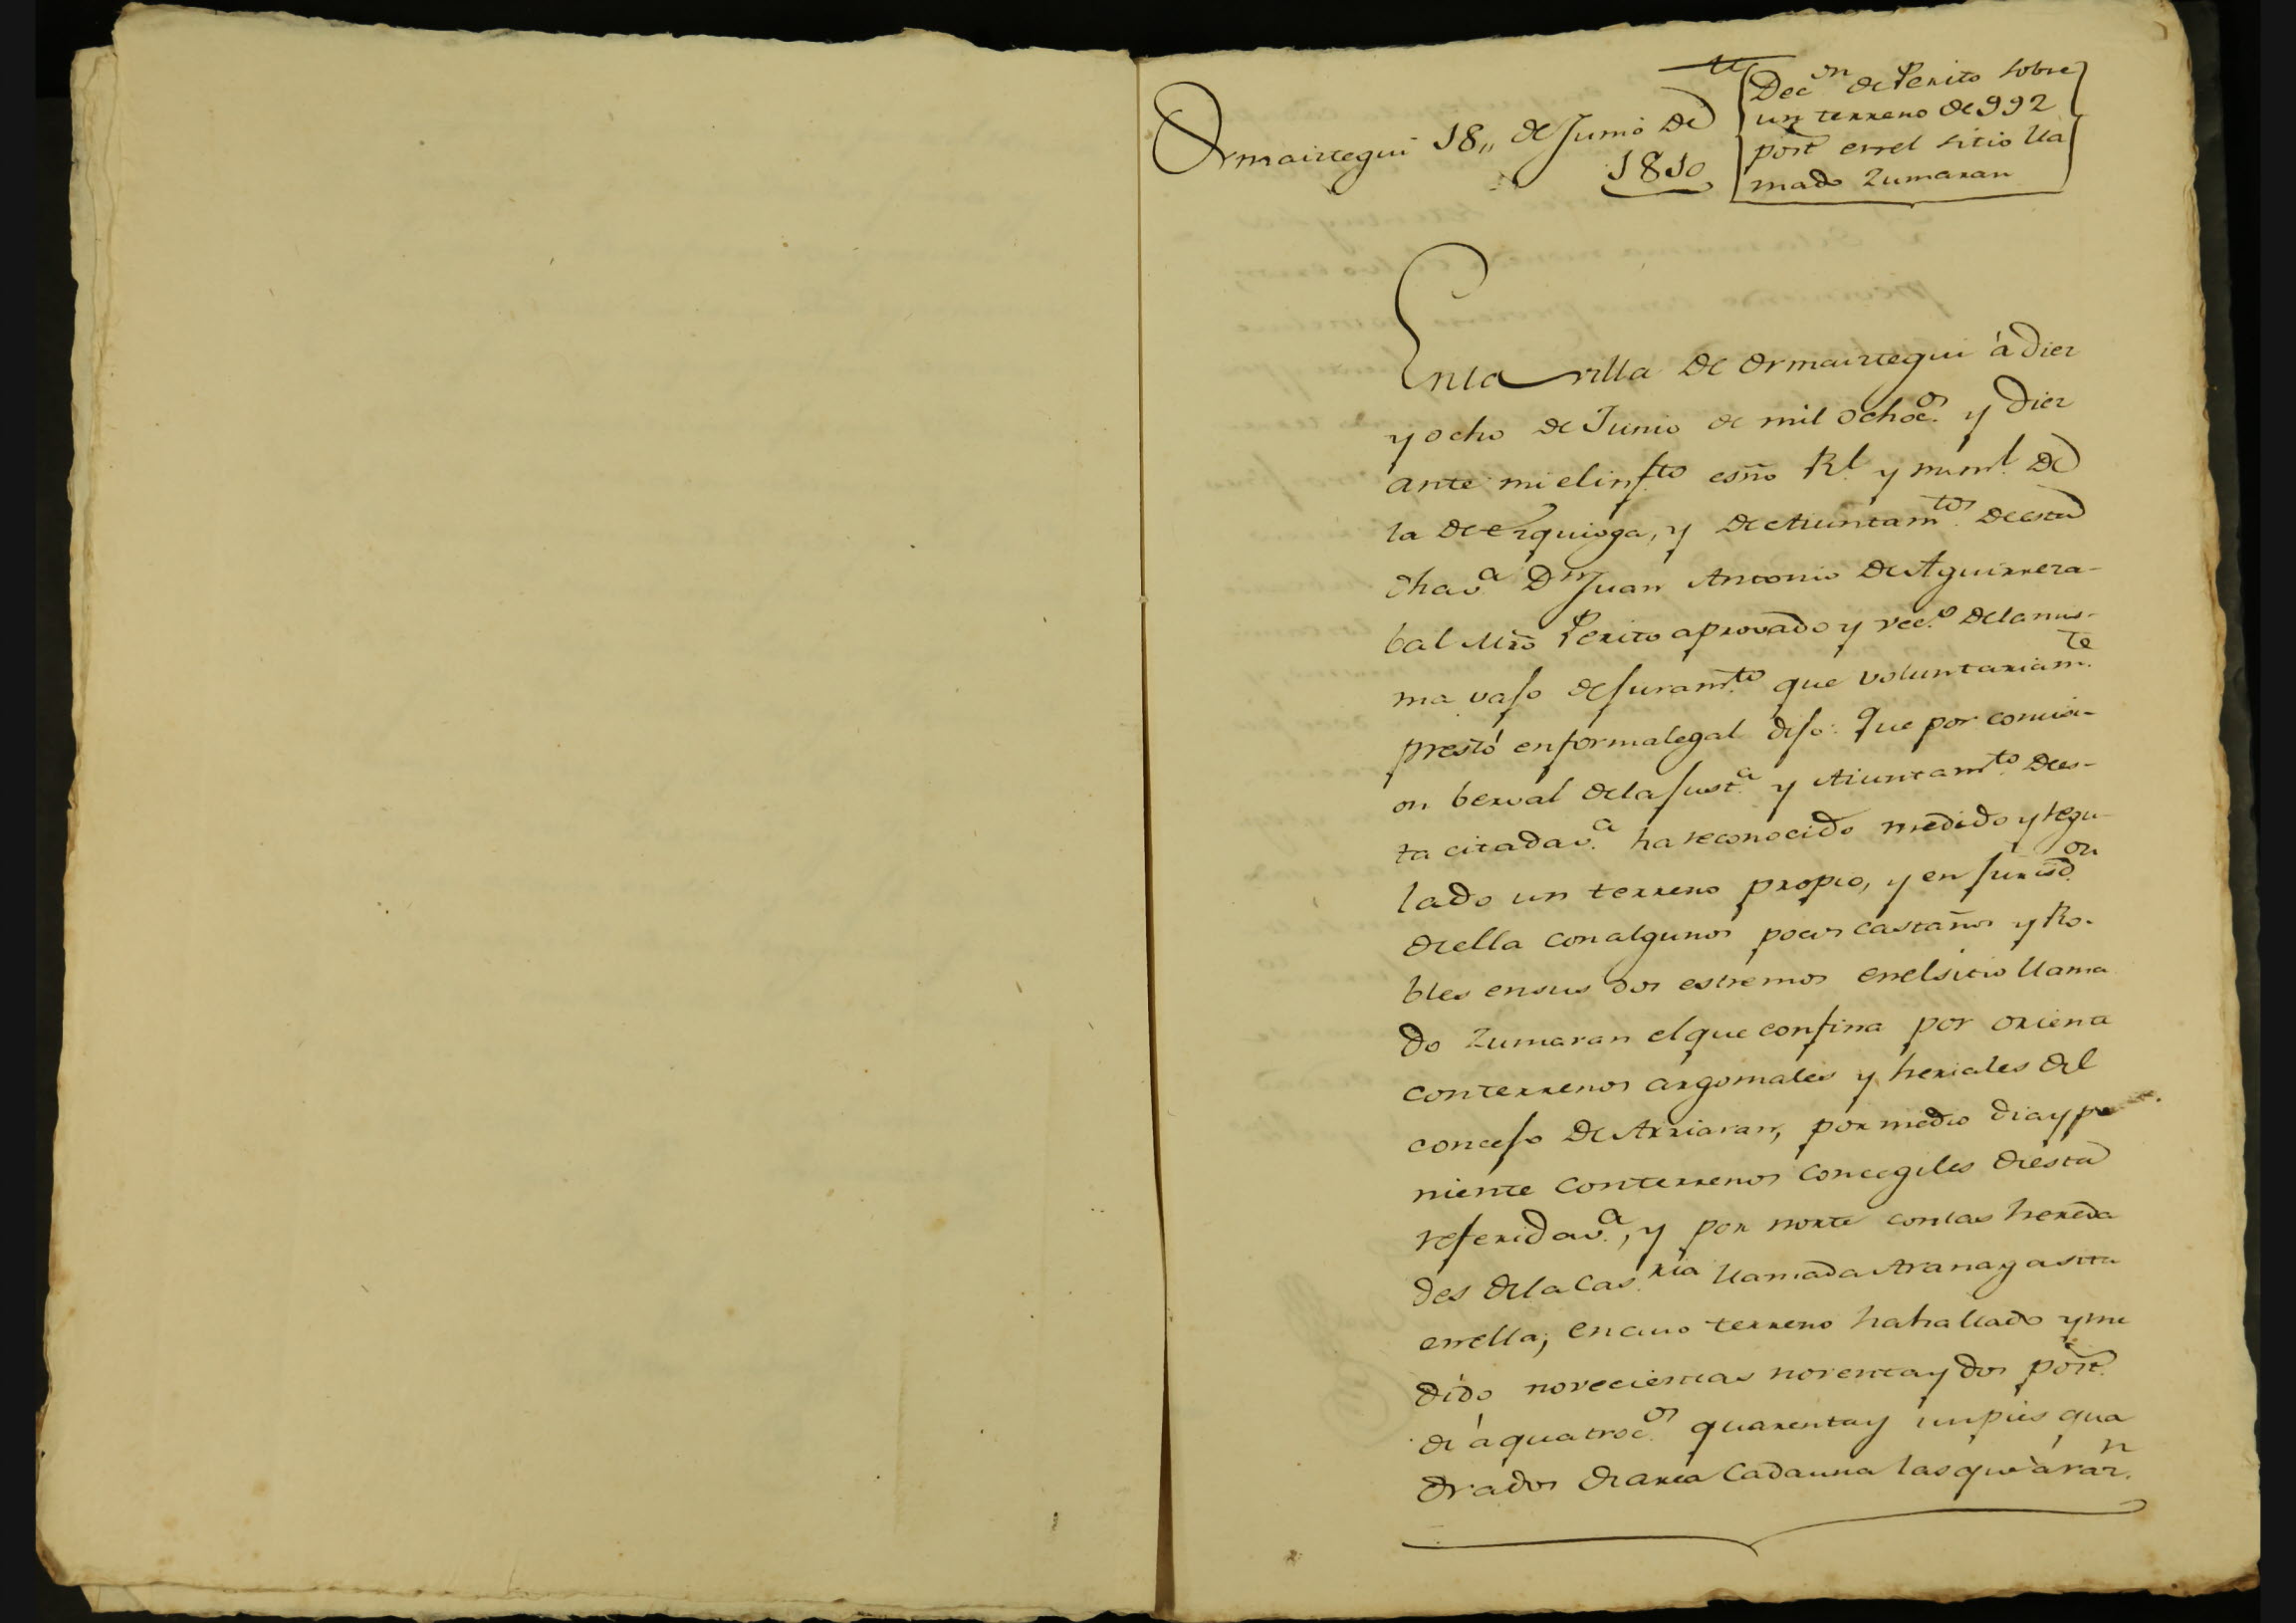 Ormaiztegui 18,, de Junio de
1810
Decon de Perito sobre
un terreno de 992
post en el sitio lla
mado Zumaran
En la villa de Ormaiztegui á diez
y ocho de Junio de mil ochoc.os y diez
ante mi el inf.to esño Rl. y num.l de
la de Ezquioga, y de Aiuntam.tos de esta
dha v.a Dn Juan Antonio de Aguirreza-
bal Mro Perito aprovado y vec.o de la mis-
ma vajo de juram.to que voluntariam.te
prestó en forma legal dijo: Que por comisi-
on berval de la just.a y Aiuntam.to de es-
ta citada v.a ha reconocido medido y regu-
lado un terreno propio, y en jurisd.on
de ella con algunos pocos castaños y Ro-
bles en sus dos estremos en el sitio llama
do Zumaran el que confina por oriena
con terrenos argomales y heriales del
concejo de Arriaran, por medio dia y po
niente con terrenos concegiles de esta
referida v.a, y por norte con las hereda
des de la Cas.ria llamada Arana y a situ
en ella; en cuio terreno ha hallado y me
dido novecientas noventa y dos post.
de á quatroc.os quarenta y un pies qua
drados de area cada una las que á raz.n